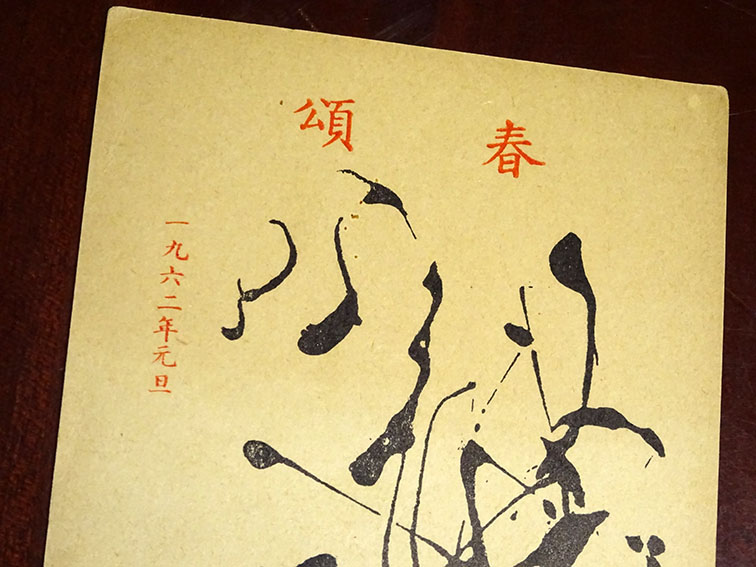 頌春
一九六二年元旦